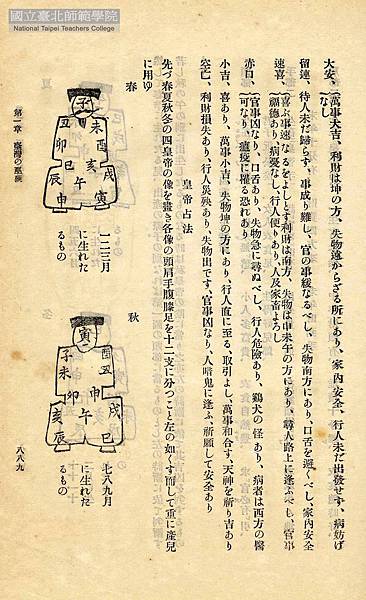 國立臺北師範學院
National Taipei Teachers College
大安、
萬事大吉、利財は坤の方、失物遠からざる所にあり、家內安全、行人未だ出發せず、病妨げ
なし
留連、待人未だ歸らず、事成り難し、官の事緩なるべし、失物南方にあり、口舌を避くべし、家內安全
速喜、
喜ぶ事速なるをよしとす利財は南方、失物は申未午の方にあり、尋人路上に逢ふべし、官事
福德あり、病憂なし、行人便りあり、人及家畜よろし
赤口、
官事凶なり、口舌あり、失物急に尋ぬべし、行人危險あり、鷄犬の怪あり、病者は西方の醫
可なり、瘟疫に罹る恐れあり
小吉、喜あり、萬事小吉、失物坤の方にあり、行人直に至る、取引よし、萬事和合す、天神を祈り吉あり
空亡、利財損失あり、行人災殃あり、失物出です、官事凶なり、人暗鬼に逢ふ、祈願して安全あり
皇帝占法
先づ春夏秋冬の四皇帝の像を畫き各像の頭肩手腹膝足を十二支に分つこと左の如くす而して重に產兒
に用ゆ
春
子
丑 未
卯 酉
巳 亥 戌
午
辰 申 寅
一二三月
に生れた
るもの
秋
寅
子 酉
未 丑
卯 申 戌
午
亥 辰 巳
七八九月
に生れた
るもの
第二章 臺灣の巫覡
八八九